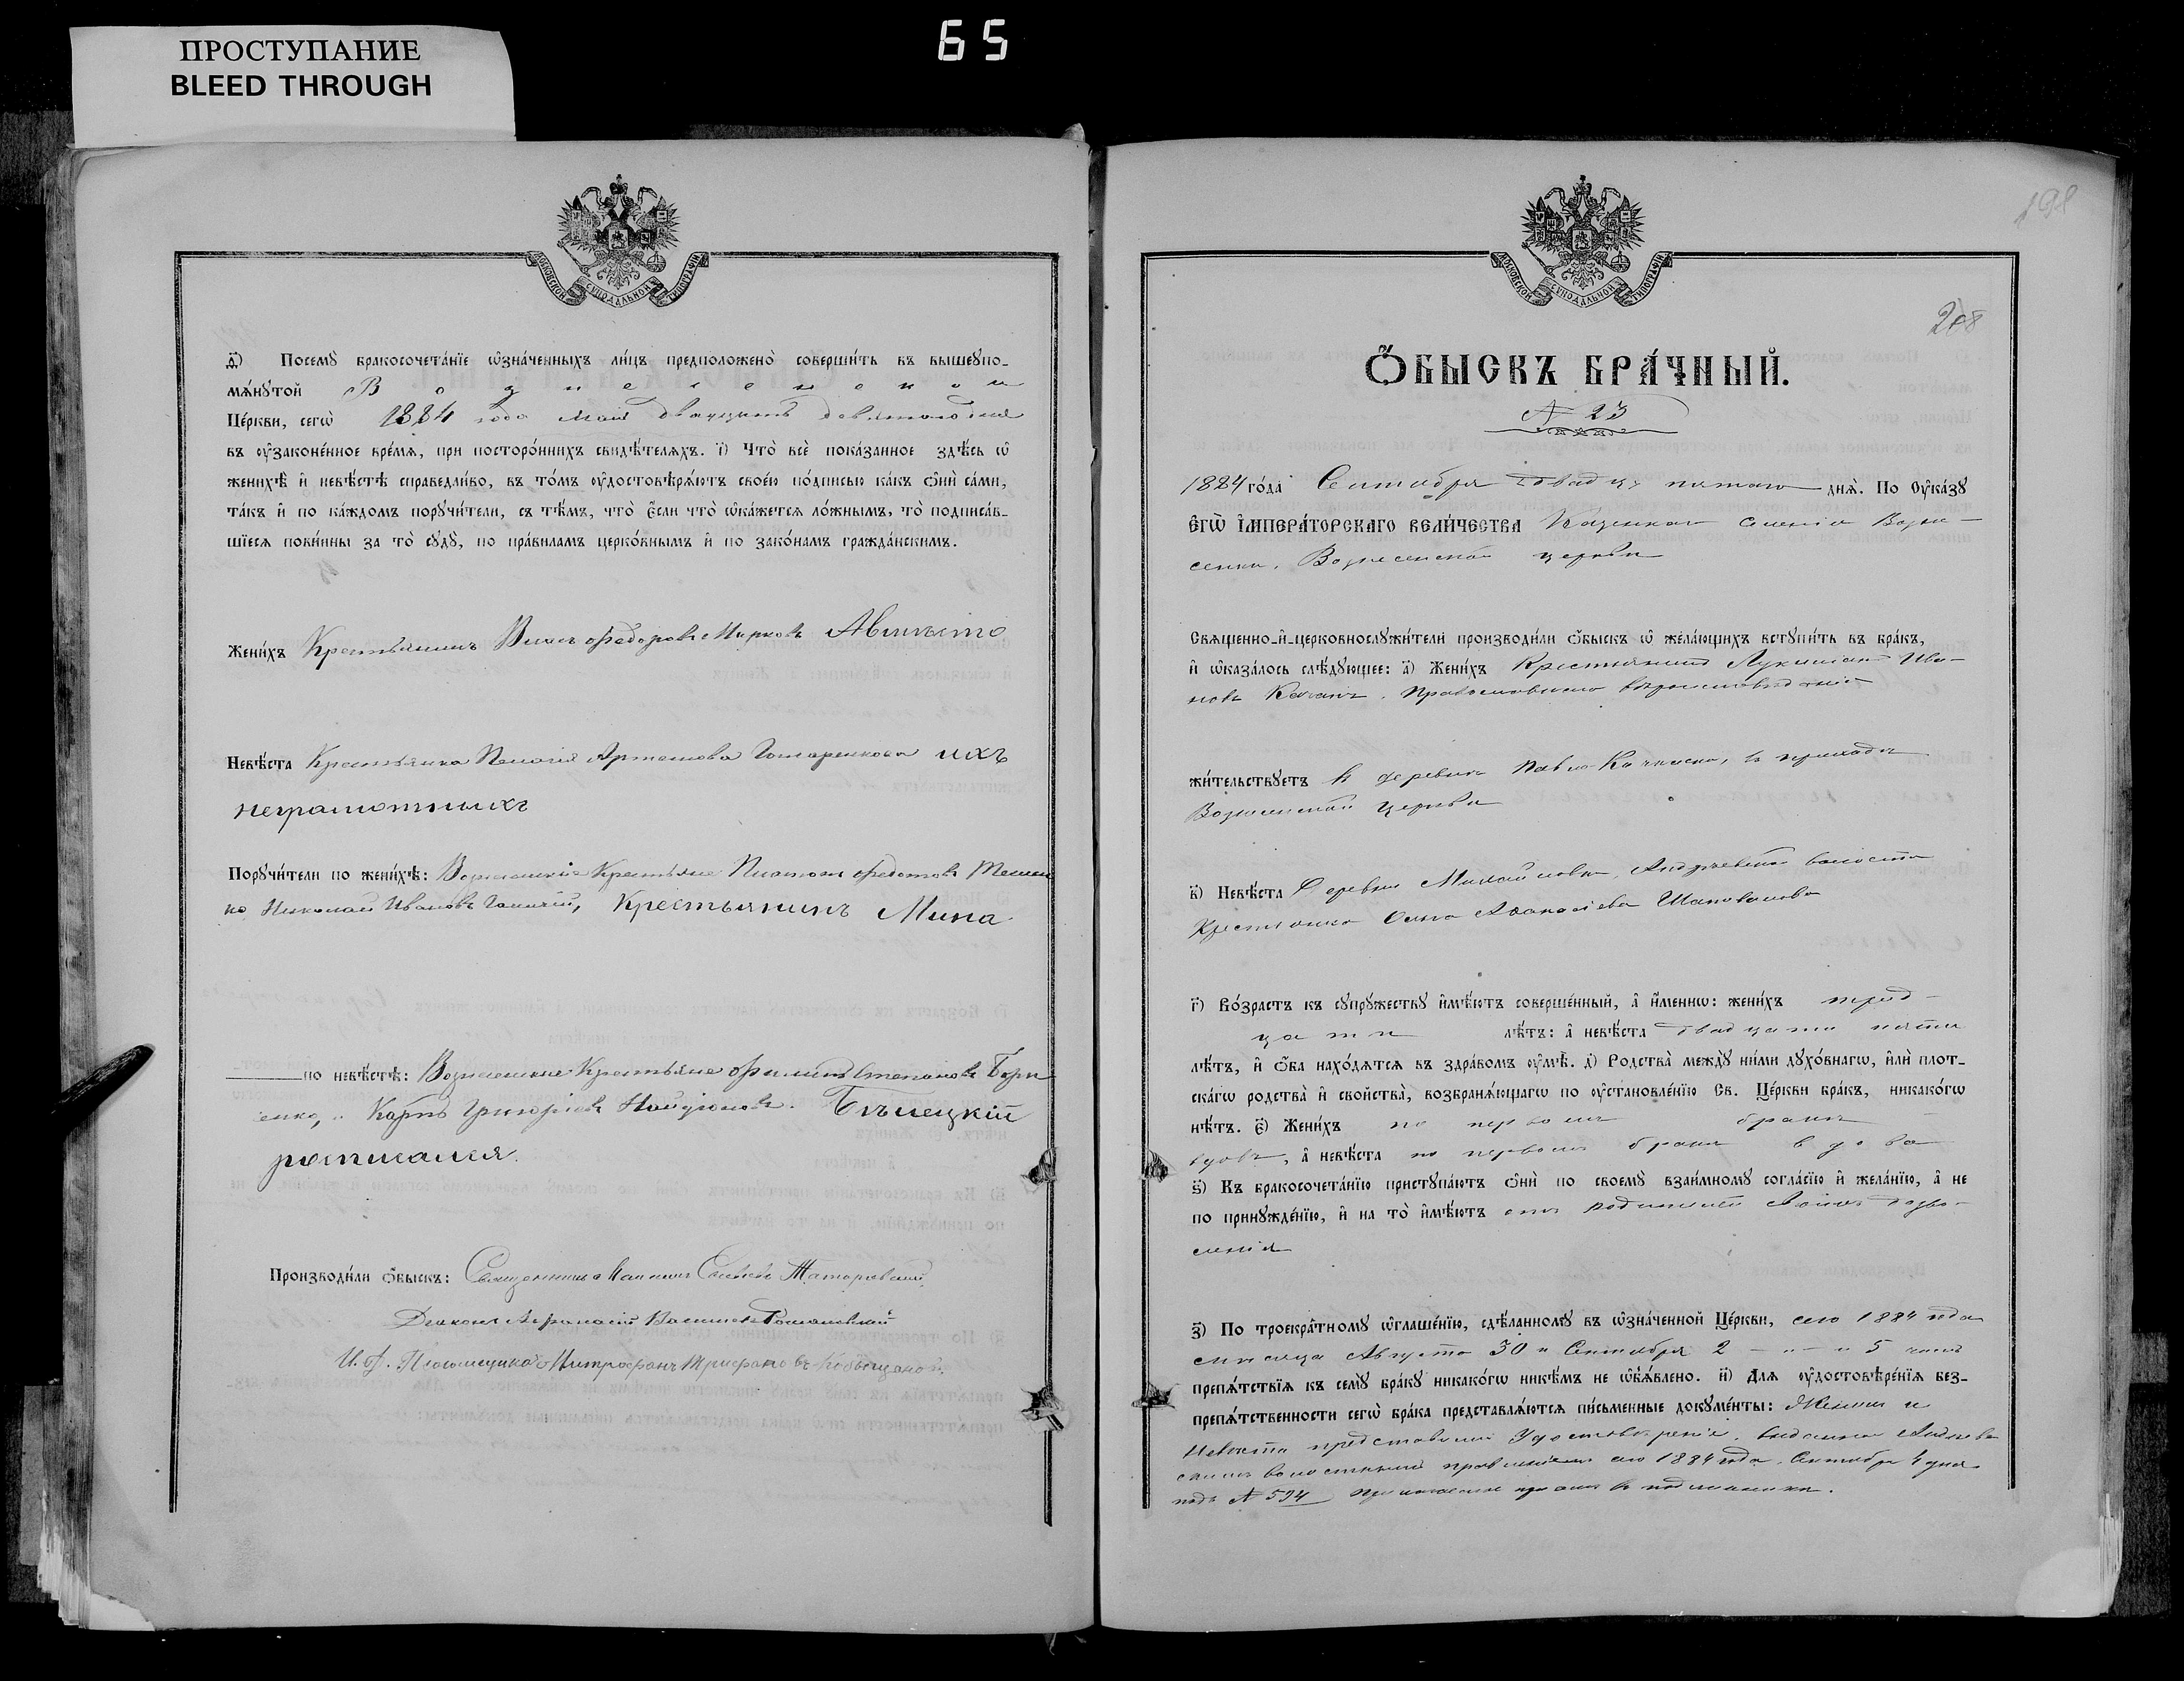 ПРОСТУПАНИЕ
BLEED THROUGH
65
МОСКОВСКОЙ СѴНОДАЛЬНОЙ ТИПОГРАФІИ
д҃) Посемꙋ бракосочета́нїе ѡ҆зна́ченныхъ ли́цъ предположено̀ соверши́ть въ вышеꙋпо-
мѧ́нꙋтой Вознесенской
Це́ркви, сегѡ̀ 1884 года мая двадцать девятого дня
въ ᲂу҆законе́нное вре́мѧ, при посторо́ннихъ свидѣ́телѧхъ. і҃) Что̀ всѐ пока́занное здѣ́сь ѡ҆
женихѣ̀ и҆ невѣ́стѣ справедли́во, въ то́мъ ᲂу҆достовѣрѧ́ютъ свое́ю по́дписью ка́къ ѻ҆нѝ са́ми,
та́къ и҆ по ка́ждомъ порꙋчи́тели, съ тѣ́мъ, что̀ є҆́сли что̀ ѡ҆ка́жетсѧ ло́жнымъ, то̀ подписа́в-
шїесѧ пови́нны за то̀ сꙋдꙋ̀, по пра́виламъ церко́внымъ и҆ по зако́намъ гражда́нскимъ.
Жени́хъ Крестьянинъ Федоровъ Марковъ
Невѣ́ста Крестьянка Пелагія Артемова Гончаренкова ихъ
неграмотныхъ
Порꙋчи́тели по женихѣ̀: Вознесенскіе Крестьяне Платонъ Федотовъ
ко Николай Ивановъ Крестьянинъ Мина
по невѣ́стѣ: Вознесенскіе Крестьяне Филипъ Степановъ
енко, и Карпъ Григорьевъ Найдіоновъ. Бѣлецкій
росписался.
Производи́ли ѻ҆́быскъ: Священникъ
Діаконъ Афанасій Васильевъ Романовскій
И. д. Псаломщика Митрофанъ Трифановъ
МОСКОВСКОЙ СѴНОДАЛЬНОЙ ТИПОГРАФІИ
198
208
Ѻ҆́БЫСКЪ БРА́ЧНЫЙ.
№ 23
1884 го́да Сентября двадцать пятаго днѧ̀. По Оу҆ка́зꙋ
Є҆гѡ̀ І҆мпера́торскагѡ Вели́чества Казенного селенія Возне-
сенки, Вознесенской церкви
Свѧще́нно-и҆-церковнослꙋжи́тели производи́ли ѻ҆́быскъ ѡ҆ жела́ющихъ встꙋпи́ть въ бра́къ,
и҆ ѡ҆каза́лось слѣ́дꙋющее: а҃) Жени́хъ Крестьянинъ Лукиянъ Ива-
новъ Качанъ, православнаго вѣроисповѣданія
жи́тельствꙋетъ въ деревнѣ Павло-Кичкаско, въ приходѣ
Вознесенской церкви
в҃) Невѣ́ста деревни Михайловки, Андреевской волости
Крестьянка Анна Афанасіева Шаповалова
г҃) Во́зрастъ къ сꙋпрꙋ́жествꙋ и҆мѣ́ютъ соверше́нный, а҆ и҆́меннѡ: жени́хъ трид-
цати лѣ́тъ: а҆ невѣ́ста двадцати пяти
лѣ́тъ, и҆ ѻ҆́ба нахо́дѧтсѧ въ здра́вомъ ᲂу҆мѣ̀. д҃) Родства̀ междꙋ̀ ни́ми дꙋхо́внагѡ, и҆лѝ плот-
ска́гѡ родства̀ и҆ сво́йства, возбранѧ́ющагѡ по ᲂу҆становле́нїю Св. Це́ркви бра́къ, никако́гѡ
нѣ́тъ. є҃) Жени́хъ по первомъ бракѣ
вдовъ, а҆ невѣ́ста по первомъ бракѣ вдова
ѕ҃) Къ бракосочета́нїю пристꙋпа́ютъ ѻ҆нѝ по своемꙋ̀ взаи́мномꙋ согла́сїю и҆ жела́нїю, а҆ не
по принꙋжде́нїю, и҆ на то̀ и҆мѣ́ютъ отъ родителей своихъ позво-
ленія
з҃) По троекра́тномꙋ ѡ҆глаше́нїю, сдѣ́ланномꙋ въ ѡ҆зна́ченной Це́ркви, сего 1884 года
мѣсяца Августа 30 и Сентября 2 и 5 чиселъ
препѧ́тствїѧ къ семꙋ̀ бра́кꙋ никако́гѡ никѣ́мъ не ѡ҆б̾ѧ́влено. и҃) Длѧ ᲂу҆достовѣре́нїѧ без-
препѧ́тственности сегѡ̀ бра́ка представлѧ́ютсѧ пи́сьменные докꙋме́нты: Женихъ и
Невѣста представили Удостовѣреніе, выданное Андреев-
скимъ волостнымъ правленіемъ сего 1884 года, Сентября 4 дня
подъ № 594 приложенное при семъ въ подлинникѣ.